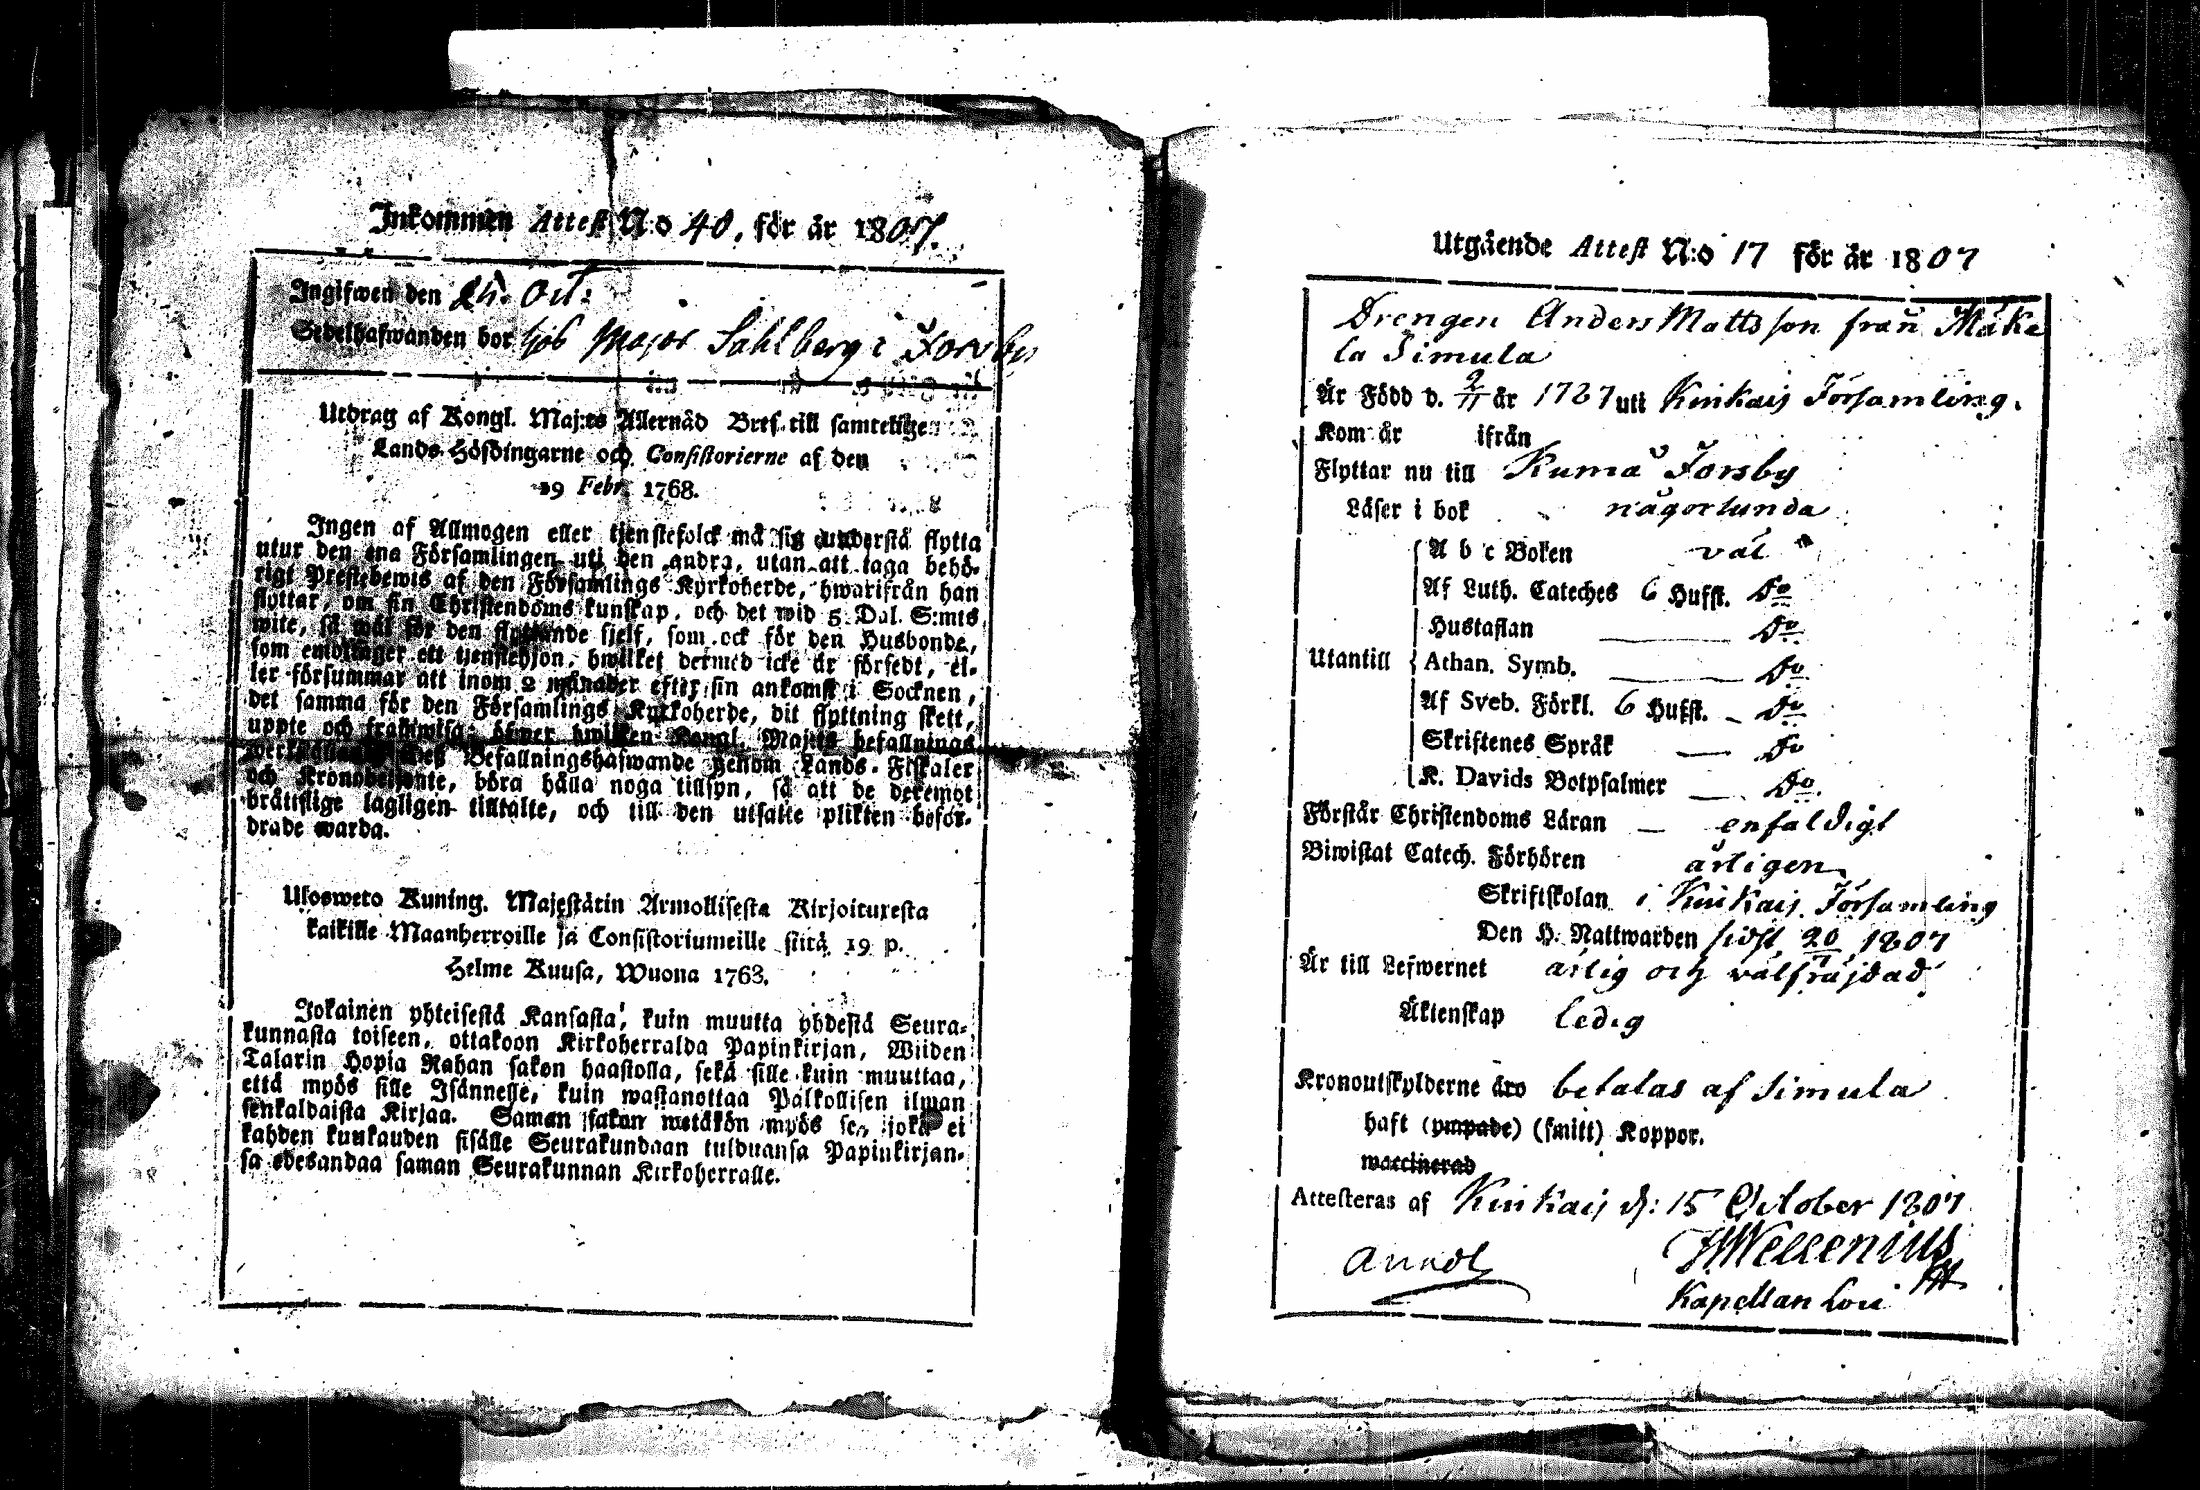 Inkommen Attest N:o 40. för år 1807.
Ingifwen den 25. Oct:
Sedelhafwanden bor hos Major Sahlberg i Forsby
Utdrag af Kongl. Maj:ts Allernåd Bref till samtelige
Lands-Höfdingarne och Consistorierne af den
19 Febr. 1768.
Ingen af Allmogen eller tjenstefolck må sig understå flytta
utur den ena Församlingen uti den andra, utan att taga behö-
rigt Prestebewis af den Församlings Kyrkoherde, hwarifrån han
flyttar, om sin Christendoms kunskap, och det wid 5 Dal. S:mts
wite, så wäl för den flyttande sjelf, som ock för den Husbonde,
som emottager ett tjenstehjon, hwilket dermed icke är försedt, el-
ler försummar att inom 2 månader efter sin ankomst i Socknen,
det samma för den Församlings Kyrkoherde, dit flyttning skett,
uppte och framwisa; öfwer hwilken Kongl. Maj:ts befallnings
Befallningshafwande genom Lands-Fiskaler
och Kronobetjente, böra hålla noga tillsyn, så att de deremot
bråttslige lagligen tilltalte, och till den utsatte plikten befor-
drade warda.
Ulosweto Kuning. Majestätin Armollisesta Kirjoituxesta
kaikille Maanherroille ja Consistoriumeille siitä 19 p.
Helme Kuusa, Wuona 1763.
Jokainen yhteisestä Kansasta, kuin muutta yhdestä Seura-
kunnasta toiseen, ottakoon Kirkoherralda Papinkirjan, Wiiden
Talarin Hopia Rahan sakon haastolla, sekä sille kuin muuttaa,
että myös sille Isännelle, kuin wastanottaa Palkollisen ilman
senkaldaista Kirjaa. Saman sakon wetäkön myös se, joka ei
kahden kuukauden sisälle Seurakundaan tulduansa Papinkirjan-
sa edesandaa saman Seurakunnan Kirkoherralle.
Utgående Attest N:o 17 för år 1807
Drengen Anders Mattsson från Mäke
la Simula
Är Född d. 2/11 år 1787 uti Kinkais Församling.
Kom år ifrån
Flyttar nu till Kumå Forsby
Läser i bok någorlunda
A b c Boken väl
Af Luth. Cateches 6 Hufst. Do
Hustaflan Do
Utantill Athan. Symb. Do
Af Sveb. Förkl. 6 Hufst. Do
Skriftenes Språk Do
K. Davids Botpsalmer Do.
Förstår Christendoms Läran enfaldigt
Biwistat Catech. Förhören årligen
Skriftskolan i Kinkais Församling
Den H. Nattwarden sidst 20/9 1807
Är till Lefwernet ärlig och välfräjdad
Äktenskap ledig
Kronoutskylderne äro betalas af Simula
haft (ympade) (smitt) Koppor.
waccinerad
Attesteras af Kinkais d: 15 October 1807
Kapellan Loci